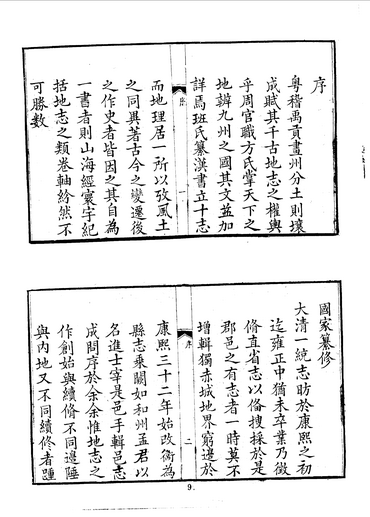 序
粤稽禹貢畫州分土則壤
成賦其千古地志之權輿
乎周官職方氏掌天下之
地辨九州之國其文益加
詳焉班氏纂漢書立十志
序
一
而地理居一所以攷風土
之同異著古今之變遷後
之作史者皆因之其自為
一書者則山海經寰宇紀
括地志之類卷軸紛然不
可勝數
國家纂修
大清一統志昉於康熙之初
迄雍正中猶未卒業乃徵
脩直省志以備搜採於是
郡邑之有志者一時莫不
增輯獨赤城地界窮邊於
序
二
康熙三十二年始改衛為
縣志乘闕如和州孟君以
名進士宰是邑手輯邑志
成問序於余余惟地志之
作創始與續脩不同邊陲
與内地又不同續修者踵
9.